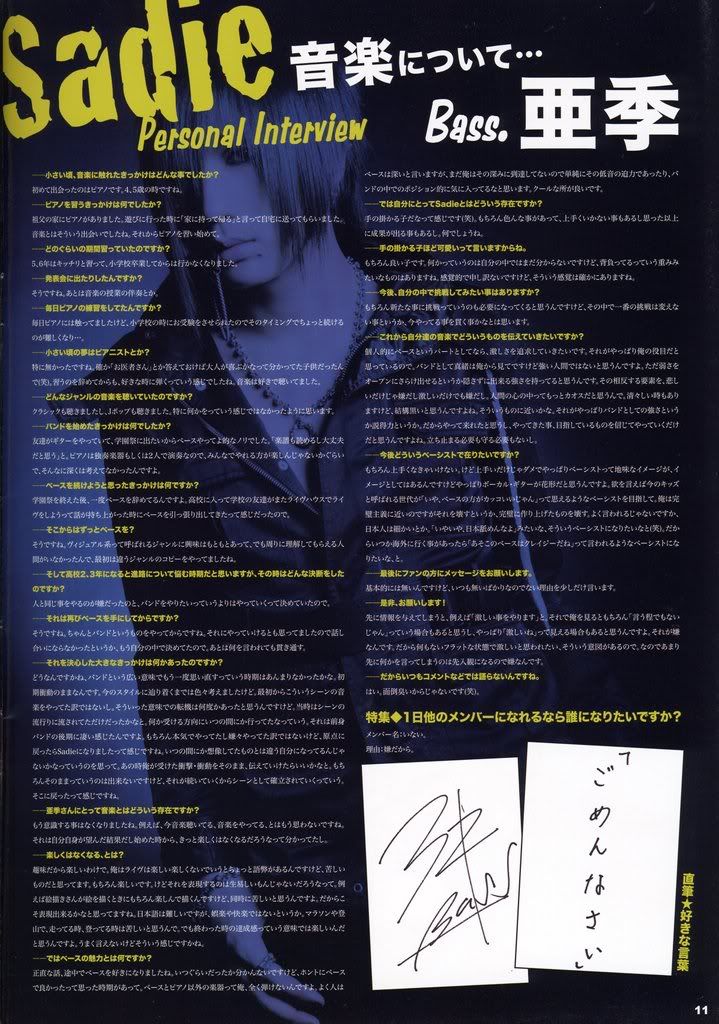 Sadie
音楽について…
Personal Interview
Bass. 亜季
──小さい頃、音楽に触れたきっかけはどんな事でしたか?
初めて出会ったのはピアノです。4、5歳の時ですね。
──ピアノを習うきっかけは何でしたか?
祖父の家にピアノがありました。遊びに行った時に「家に持って帰る」と言って自宅に送ってもらいました。
音楽とはそういう出会いでしたね。それからピアノを習い始めて。
──どのぐらいの期間習っていたのですか?
5、6年はキッチリと習って、小学校卒業してからは行かなくなりました。
──発表会に出たりしたんですか?
そうですね。あとは音楽の授業の伴奏とか。
──毎日ピアノの練習をしてたんですか?
毎日ピアノには触ってましたけど、小学校の時にお受験をさせられたのでそのタイミングでちょっと続ける
のが難しくなり…。
──小さい頃の夢はピアニストとか?
特に無かったですね。確か「お医者さん」とか答えておけば大人が喜ぶかなって分かってた子供だったん
で(笑)。習うのを辞めてからも、好きな時に弾くっていう感じでしたね。音楽は好きで聴いてました。
──どんなジャンルの音楽を聴いていたのですか?
クラシックも聴きましたし、Jポップも聴きました。特に何かをっていう感じではなかったように思います。
──バンドを始めたきっかけは何でしたか?
友達がギターをやっていて、学園祭に出たいからベースやってよ的なノリでした。「楽譜も読めるし大丈夫
だと思う」と。ピアノは独奏楽器もしくは2人で演奏なので、みんなでやれる方が楽しんじゃないかぐらい
で、そんなに深くは考えてなかったんですよ。
──ベースを続けようと思ったきっかけは何ですか?
学園祭を終えた後、一度ベースを辞めてるんですよ。高校に入って学校の友達がまたライヴハウスでライ
ヴをしようって話が持ち上がった時にベースを引っ張り出してきたって感じだったので。
──そこからはずっとベースを?
そうですね。ヴィジュアル系って呼ばれるジャンルに興味はもともとあって、でも周りに理解してもらえる人
間がいなかったんで、最初は違うジャンルのコピーをやってましたね。
──そして高校2、3年になると進路について悩む時期だと思いますが、その時はどんな決断をした
のですか?
人と同じ事をやるのが嫌だったのと、バンドをやりたいっていうよりはやっていくって決めていたので。
──それは再びベースを手にしてからですか?
そうですね。ちゃんとバンドというものをやってからですね。それにやっていけるとも思ってましたので話し
合いにならなかったというか、もう自分の中で決めてたので、あとは何を言われても貫き通す。
──それを決心した大きなきっかけは何かあったのですか?
どうなんですかね。バンドという広い意味でもう一度思い直すっていう時期はあんまりなかったかな。初
期衝動のまんまです。今のスタイルに辿り着くまでは色々考えましたけど、最初からこういうシーンの音
楽をやってた訳ではないし、そういった意味での転機は何度かあったと思うんですけど。当時はシーンの
流行りに流されてただけだったかなと。何か受ける方向にいつの間にか行ってたなっていう。それは前身
バンドの後期に凄い感じたんですよ。もちろん本気でやってたし嫌々やってた訳ではないけど、原立に
戻ったらSadieになりましたって感じですね。いつの間にか想像してたものとは違う自分になってるんじゃ
ないかなっていうのを思って。あの時俺が受けた衝撃・衝動をそのまま、伝えていけたらいいかなと。もち
ろんそのままっていうのは出来ないですけど、それが続いていくからシーンとして確立されていくっていう。
そこに戻ったって感じですね。
──亜季さんにとって音楽とはどういう存在ですか?
もう意識する事はなくなりましたね。例えば、今音楽聴いてる、音楽をやってる、とはもう思わないですね。
それは自分自身が望んだ結果だし始めた時から、きっと楽しくはなくなるだろうなって分かってたし。
──楽しくはなくなる、とは?
趣味だから楽しいわけで。俺はライヴは楽しい楽しくないでいうとちょっと語弊があるんですけど、苦しい
ものだと思ってます。もちろん楽しいです。けどそれを表現するのは生易しいもんじゃないだろうなって。例
えば絵描きさんが絵を描くときにもちろん楽しんで描くんですけど、同時に苦しいと思うんですよ。だからこ
そ表現出来るかなと思ってますね。日本語は難しいですが、娯楽や快楽ではないというか。マラソンや登
山で、走ってる時、登ってる時は苦しいと思うんで、でも終わった時の達成感っていう意味では楽しいんだ
と思うんですよ。うまく言えないけどそういう感じですかね。
──ではベースの魅力とは何ですか?
正直な話、途中でベースを好きになりましたね。いつぐらいだったか分かんないですけど、ホントにベース
で良かったって思った時期があって。ベースとピアノ以外の楽器って俺、全く弾けないんですよ。よく人は
ベースは深いと言いますが、まだ俺はその深みに到達してないので単純にその低音の迫力であったり、バ
ンドの中でのポジション的に気に入ってるなと思います。クールな所が良いです。
──では自分にとってSadieとはどういう存在ですか?
手の掛かる子だなって感じです(笑)。もちろん色んな事があって、上手くいかない事もあるし思った以上
に成果が出る事もあるし。何でしょね。
──手の掛かる子ほど可愛いって言いますからね。
もちろん良い子です。何かっていうのは自分の中ではまだ分からないですけど、背負ってるっていう重みみ
たいなものはありますね。感覚的で申し訳ないですけど、そういう感覚は確かにありますね。
──今後、自分の中で挑戦してみたい事はありますか?
もちろん新たな事に挑戦っていうのも必要になってくると思うんですけど、その中で一番の挑戦は変えな
い事というか、今やってる事を貫く事かなとは思います。
──これから自分達の音楽でどういうものを伝えていきたいですか?
個人的にベースというパートとしてなら、激しさを追求していきたいです。それがやっぱり俺の役目だと
思っているので。バンドとして真緒は俺から見てですけど強い人間ではないと思うんですよ。ただ弱さを
オープンにさらけ出せるというか隠さずに出来る強さを持ってると思うんです。その相反する要素を、悲
しいだけじゃ嫌だし激しいだけでも嫌だし。人間の心の中ってもっとカオスだと思うんで、清々しい時もあり
ますけど、結構黒いと思うんですよね。そういうものに近いかな。それがやっぱりバンドとしての強さという
か説得力というか。だからやって来れたと思うし、やってきた事、目指しているものを信じてやっていくだけ
だと思うんですよね。立ち止まる必要も守る必要もないし。
──今後どういうベーシストで在りたいですか?
もちろん上手くなきゃいけない。けど上手いだけじゃダメでやっぱりベーシストって地味なイメージが、イ
メージとしてはあるんですけどやっぱりボーカル・ギターが花形だと思うんですよ。欲を言えば今のキッズ
と呼ばれる世代が「いや、ベースの方がカッコいいじゃん」って思えるようなベーシストを目指して。俺は完
璧主義に近いのですがそれを壊すというか、完璧に作り上げたものを壊す。よく言われるじゃないですか、
日本人は細かいとか。「いやいや、日本舐めんなよ」みたいな。そういうベーシストになりたいなと(笑)。だ
からいつか海外に行く事があったら「あそこのベースはクレイジーだね」って言われるようなベーシストに
なりたいな、と。
──最後にファンの方にメッセージをお願いします。
基本的には無いんですけど、いつも無いばかりなのでない理由を少しだけ言います。
──是非、お願いします!
先に情報を与えてしまうと、例えば「激しい事をやります」と、それで俺を見るともちろん「言う程でもない
じゃん」っていう場合もあると思うし、やっぱり「激しいね」って見える場合もあると思うんですよ。それが嫌
なんです。だから何もないフラットな状態で激しいと思われたい、そういう意図があるので。なのであまり
先に何かを言ってしまうのは先入観になるので嫌なんです。
──だからいつもコメントなどでは語らないんですね。
はい。面倒臭いからじゃないです(笑)。
特集◆1日他のメンバーになれるなら誰になりたいですか?
メンバー名:いない。
理由:嫌だから。
Bass
「ごめんなさい」
直筆★好きな言葉
11